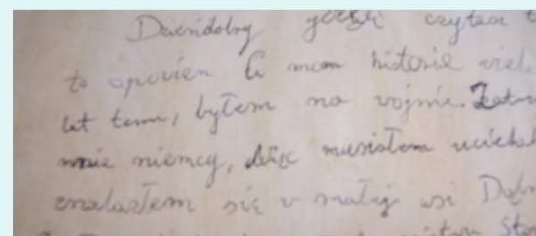 Dzieńdobry jeżeli czytasz
to opowiem Ci mom historie wiele
lat temu, byłem na wojnie.
mnie niemcy, więc musiałem uciekać
znalazłem się w małej wsi